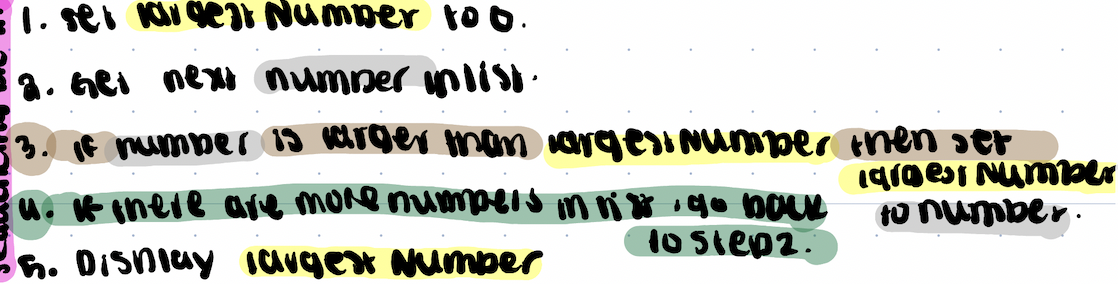 1. set largest Number to 0.
2. Get next number in list.
3. If number is larger than largest Number then set
largest Number
to number.
4. If there are more numbers in list, go back
to step 2.
5. Display largest Number